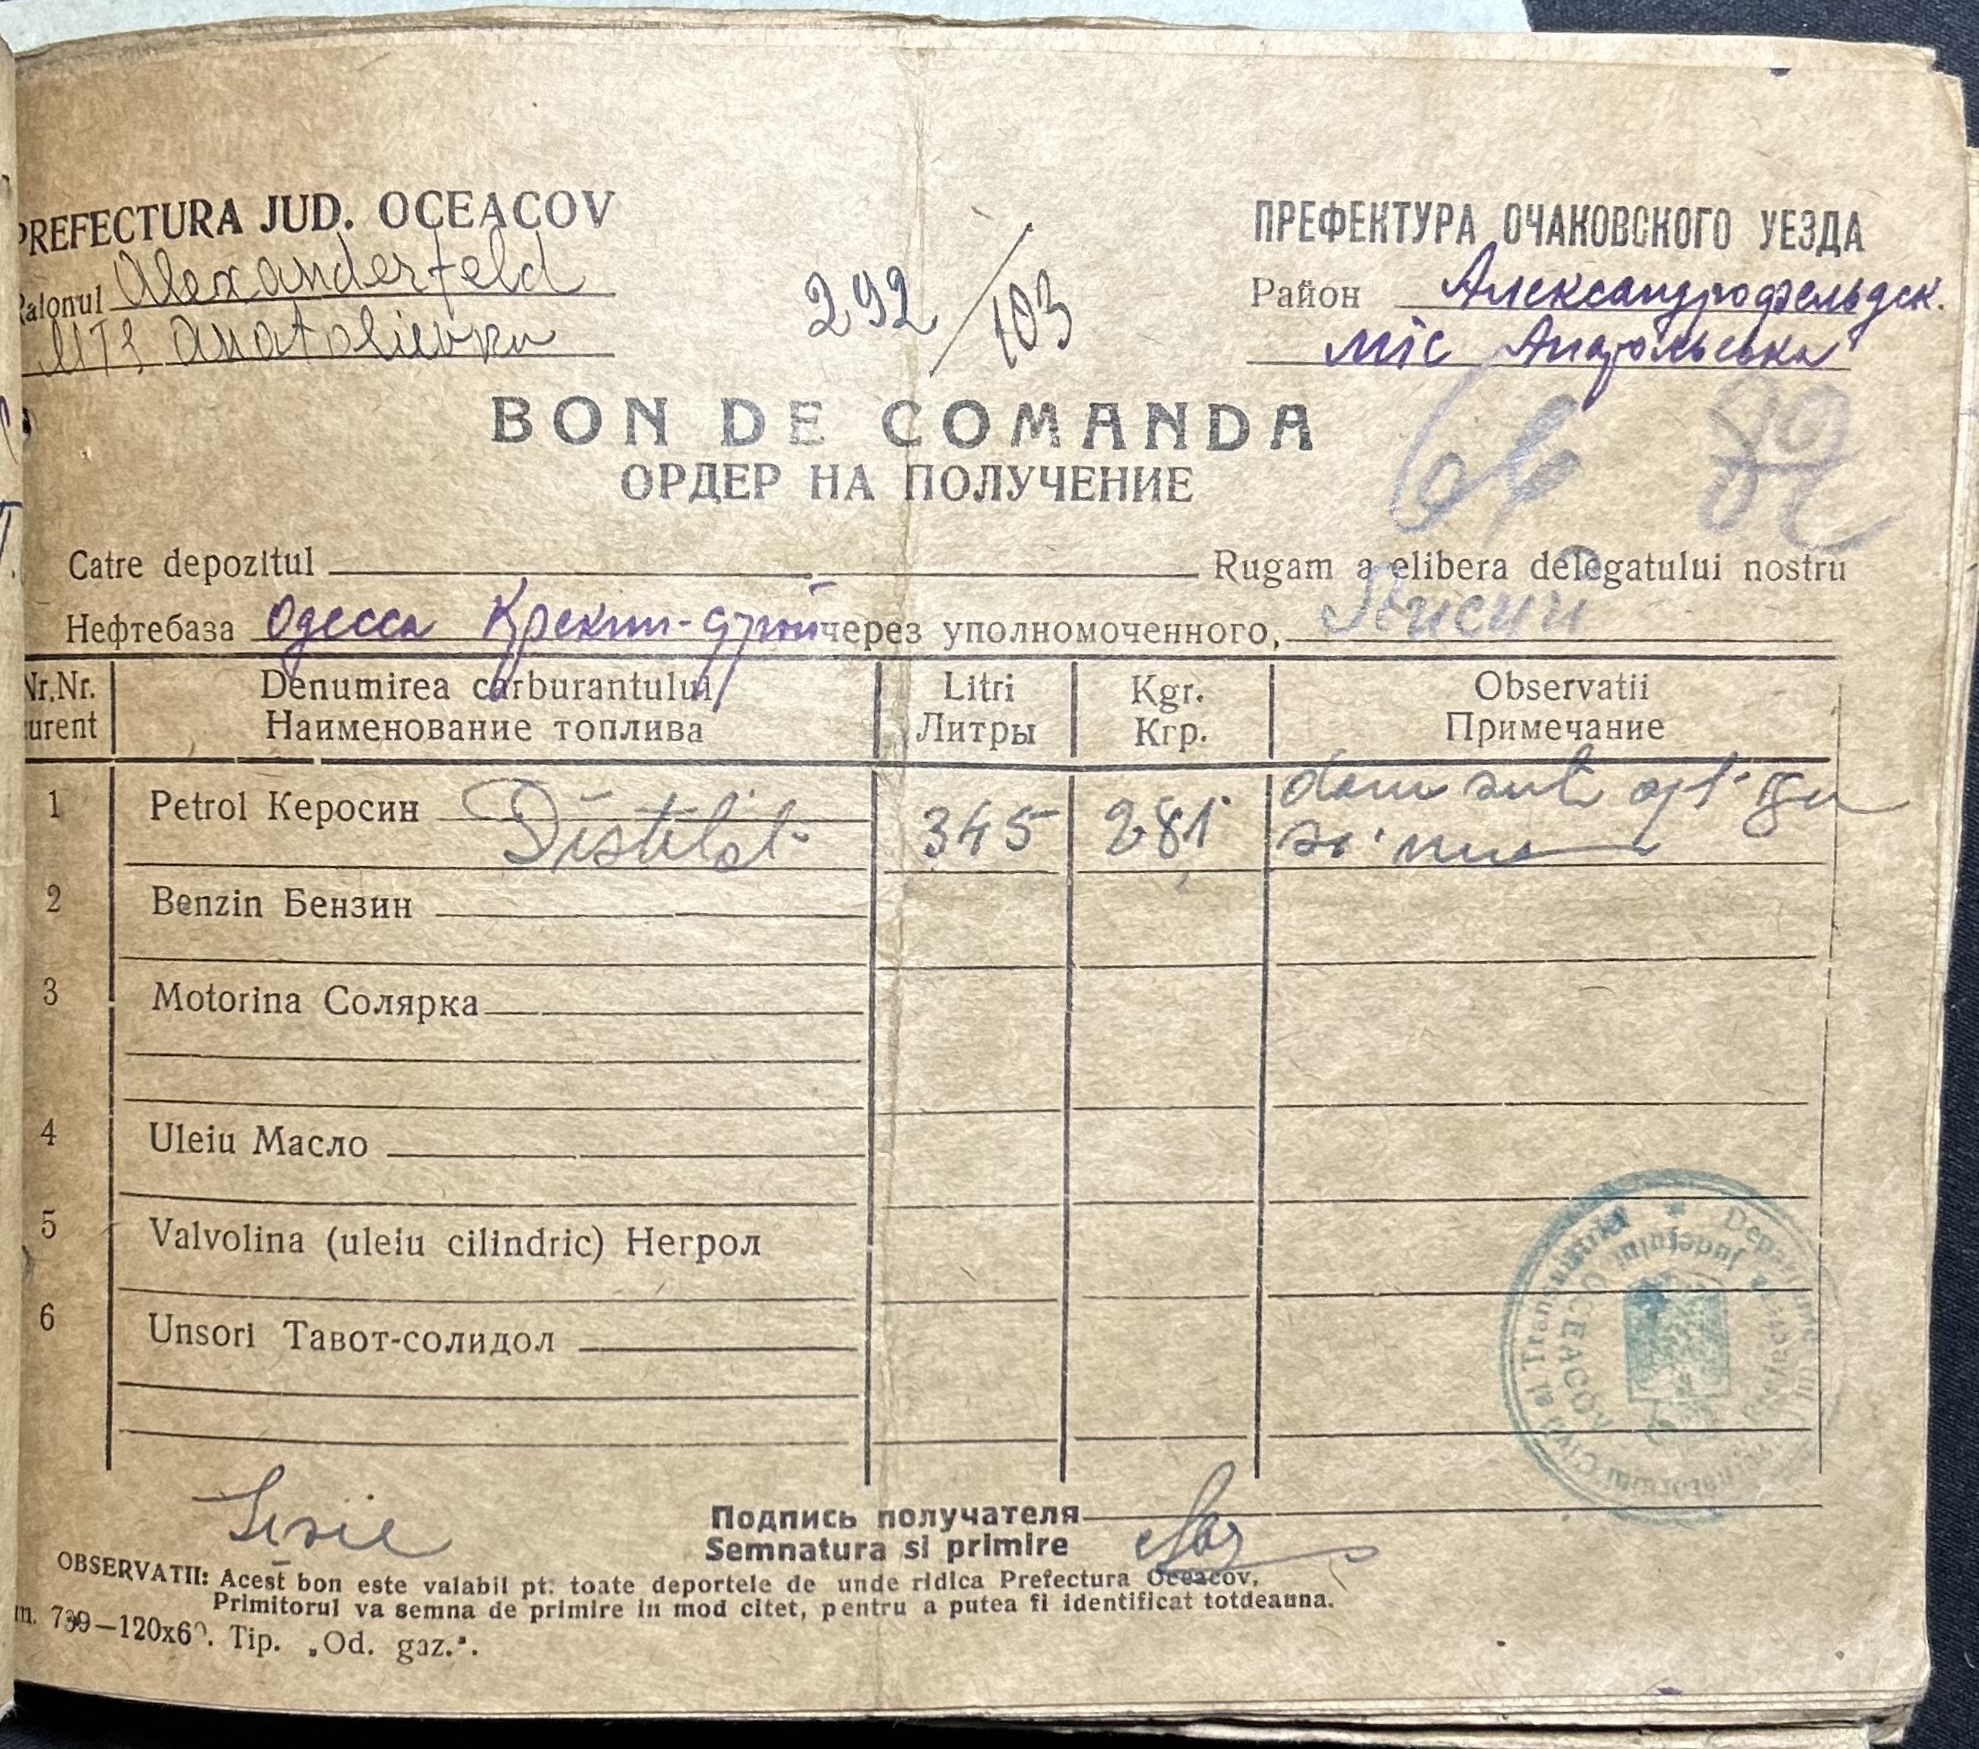 PREFECTURA JUD. OCEACOV
Raionul Alexanderfeld
MTS Anatolievka
292/103
ПРЕФЕКТУРА ОЧАКОВСКОГО УЕЗДА
Район Александрофельдск.
мтс Анатольевка
BON DE COMANDA
ОРДЕР НА ПОЛУЧЕНИЕ
Catre depozitul Rugam a elibera delegatului nostru
Нефтебаза Одесса Крекин-строй через уполномоченного,
Nr.Nr. Denumirea carburantului Litri Kgr. Observatii
curent Наименование топлива Литры Кгр. Примечание
1 Petrol Керосин Distilat 345 281 dam sub opt
si
2 Benzin Бензин
3 Motorina Солярка
4 Uleiu Масло
5 Valvolina (uleiu cilindric) Негрол
6 Unsori Тавот-солидол
Departamentul
Guvernamântul Civil al Transnistriei
Prefectura Judetului
OCEACOV
Подпись получателя
Semnatura si primire
OBSERVATII: Acest bon este valabil pt. toate deportele de unde ridica Prefectura Oceacov.
Primitorul va semna de primire in mod citet, pentru a putea fi identificat totdeauna.
m. 739—120x60. Tip. „Od. gaz.".